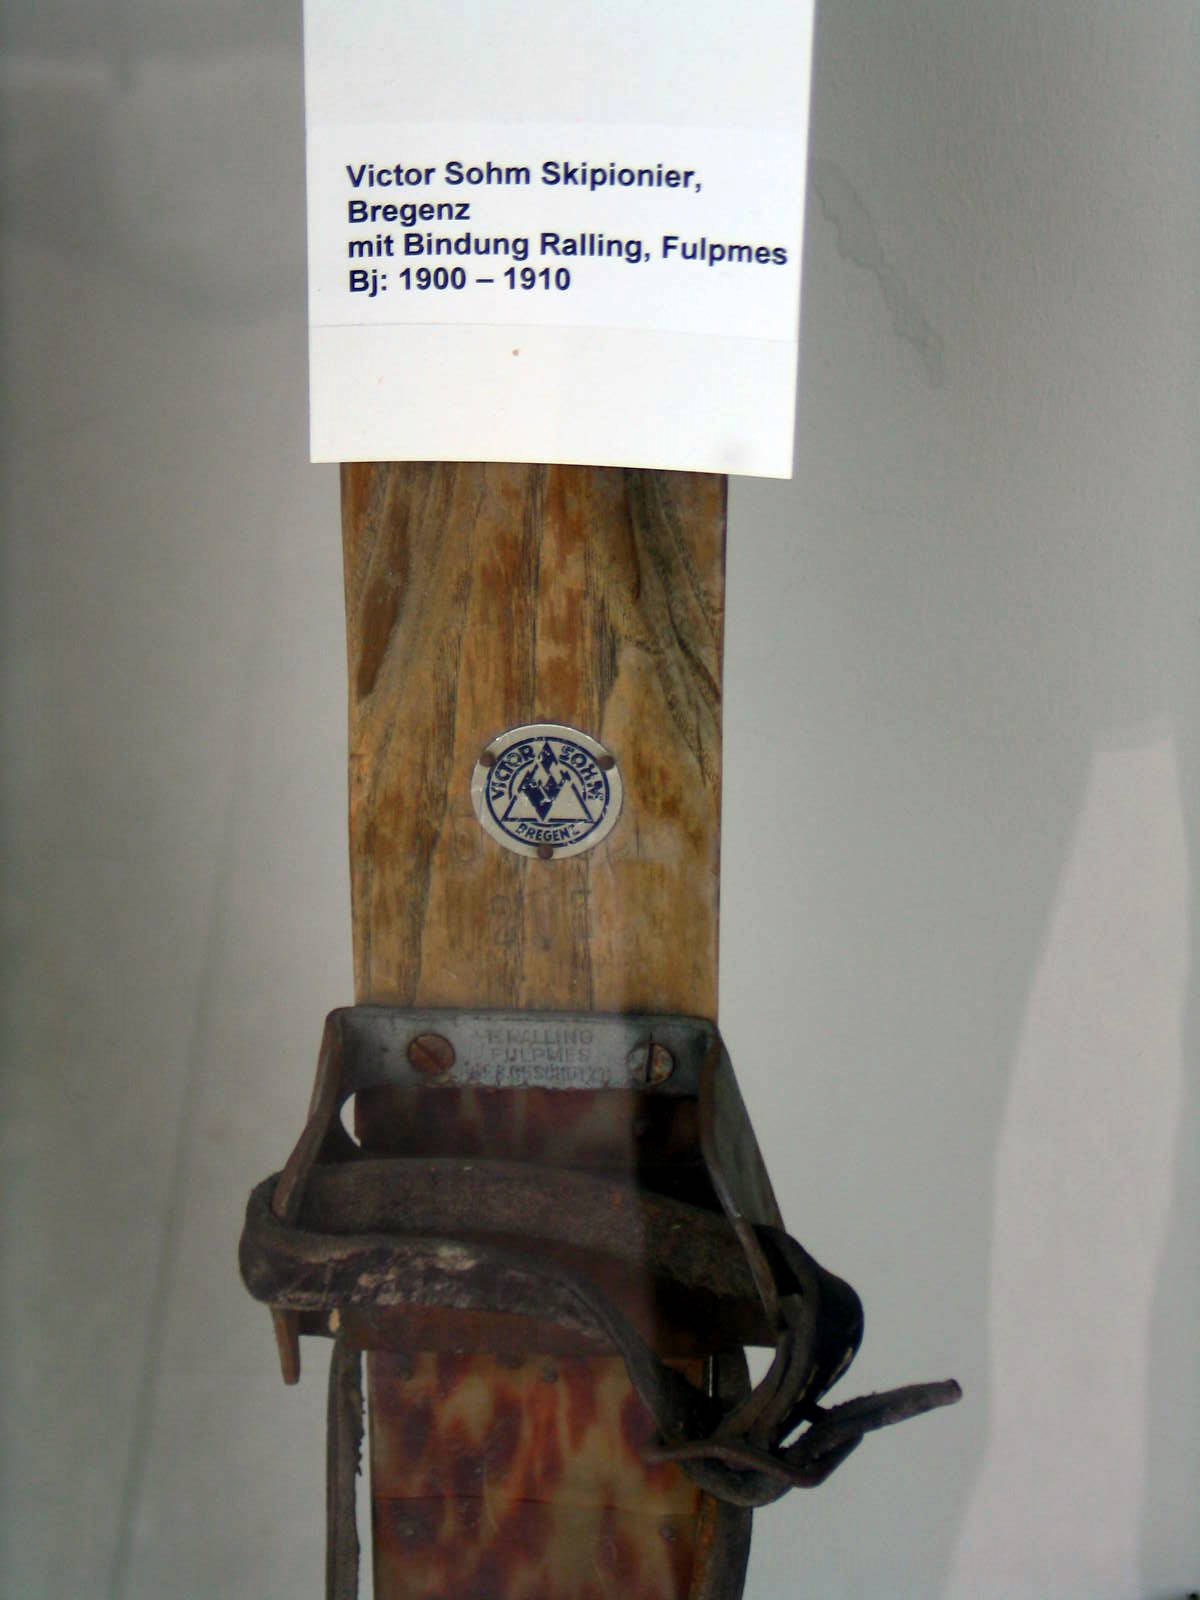 Victor Sohm Skipionier,
Bregenz
mit Bindung Ralling, Fulpmes
Bj: 1900 – 1910
VICTOR SOHM
BREGENZ
RALLING
FULPMES